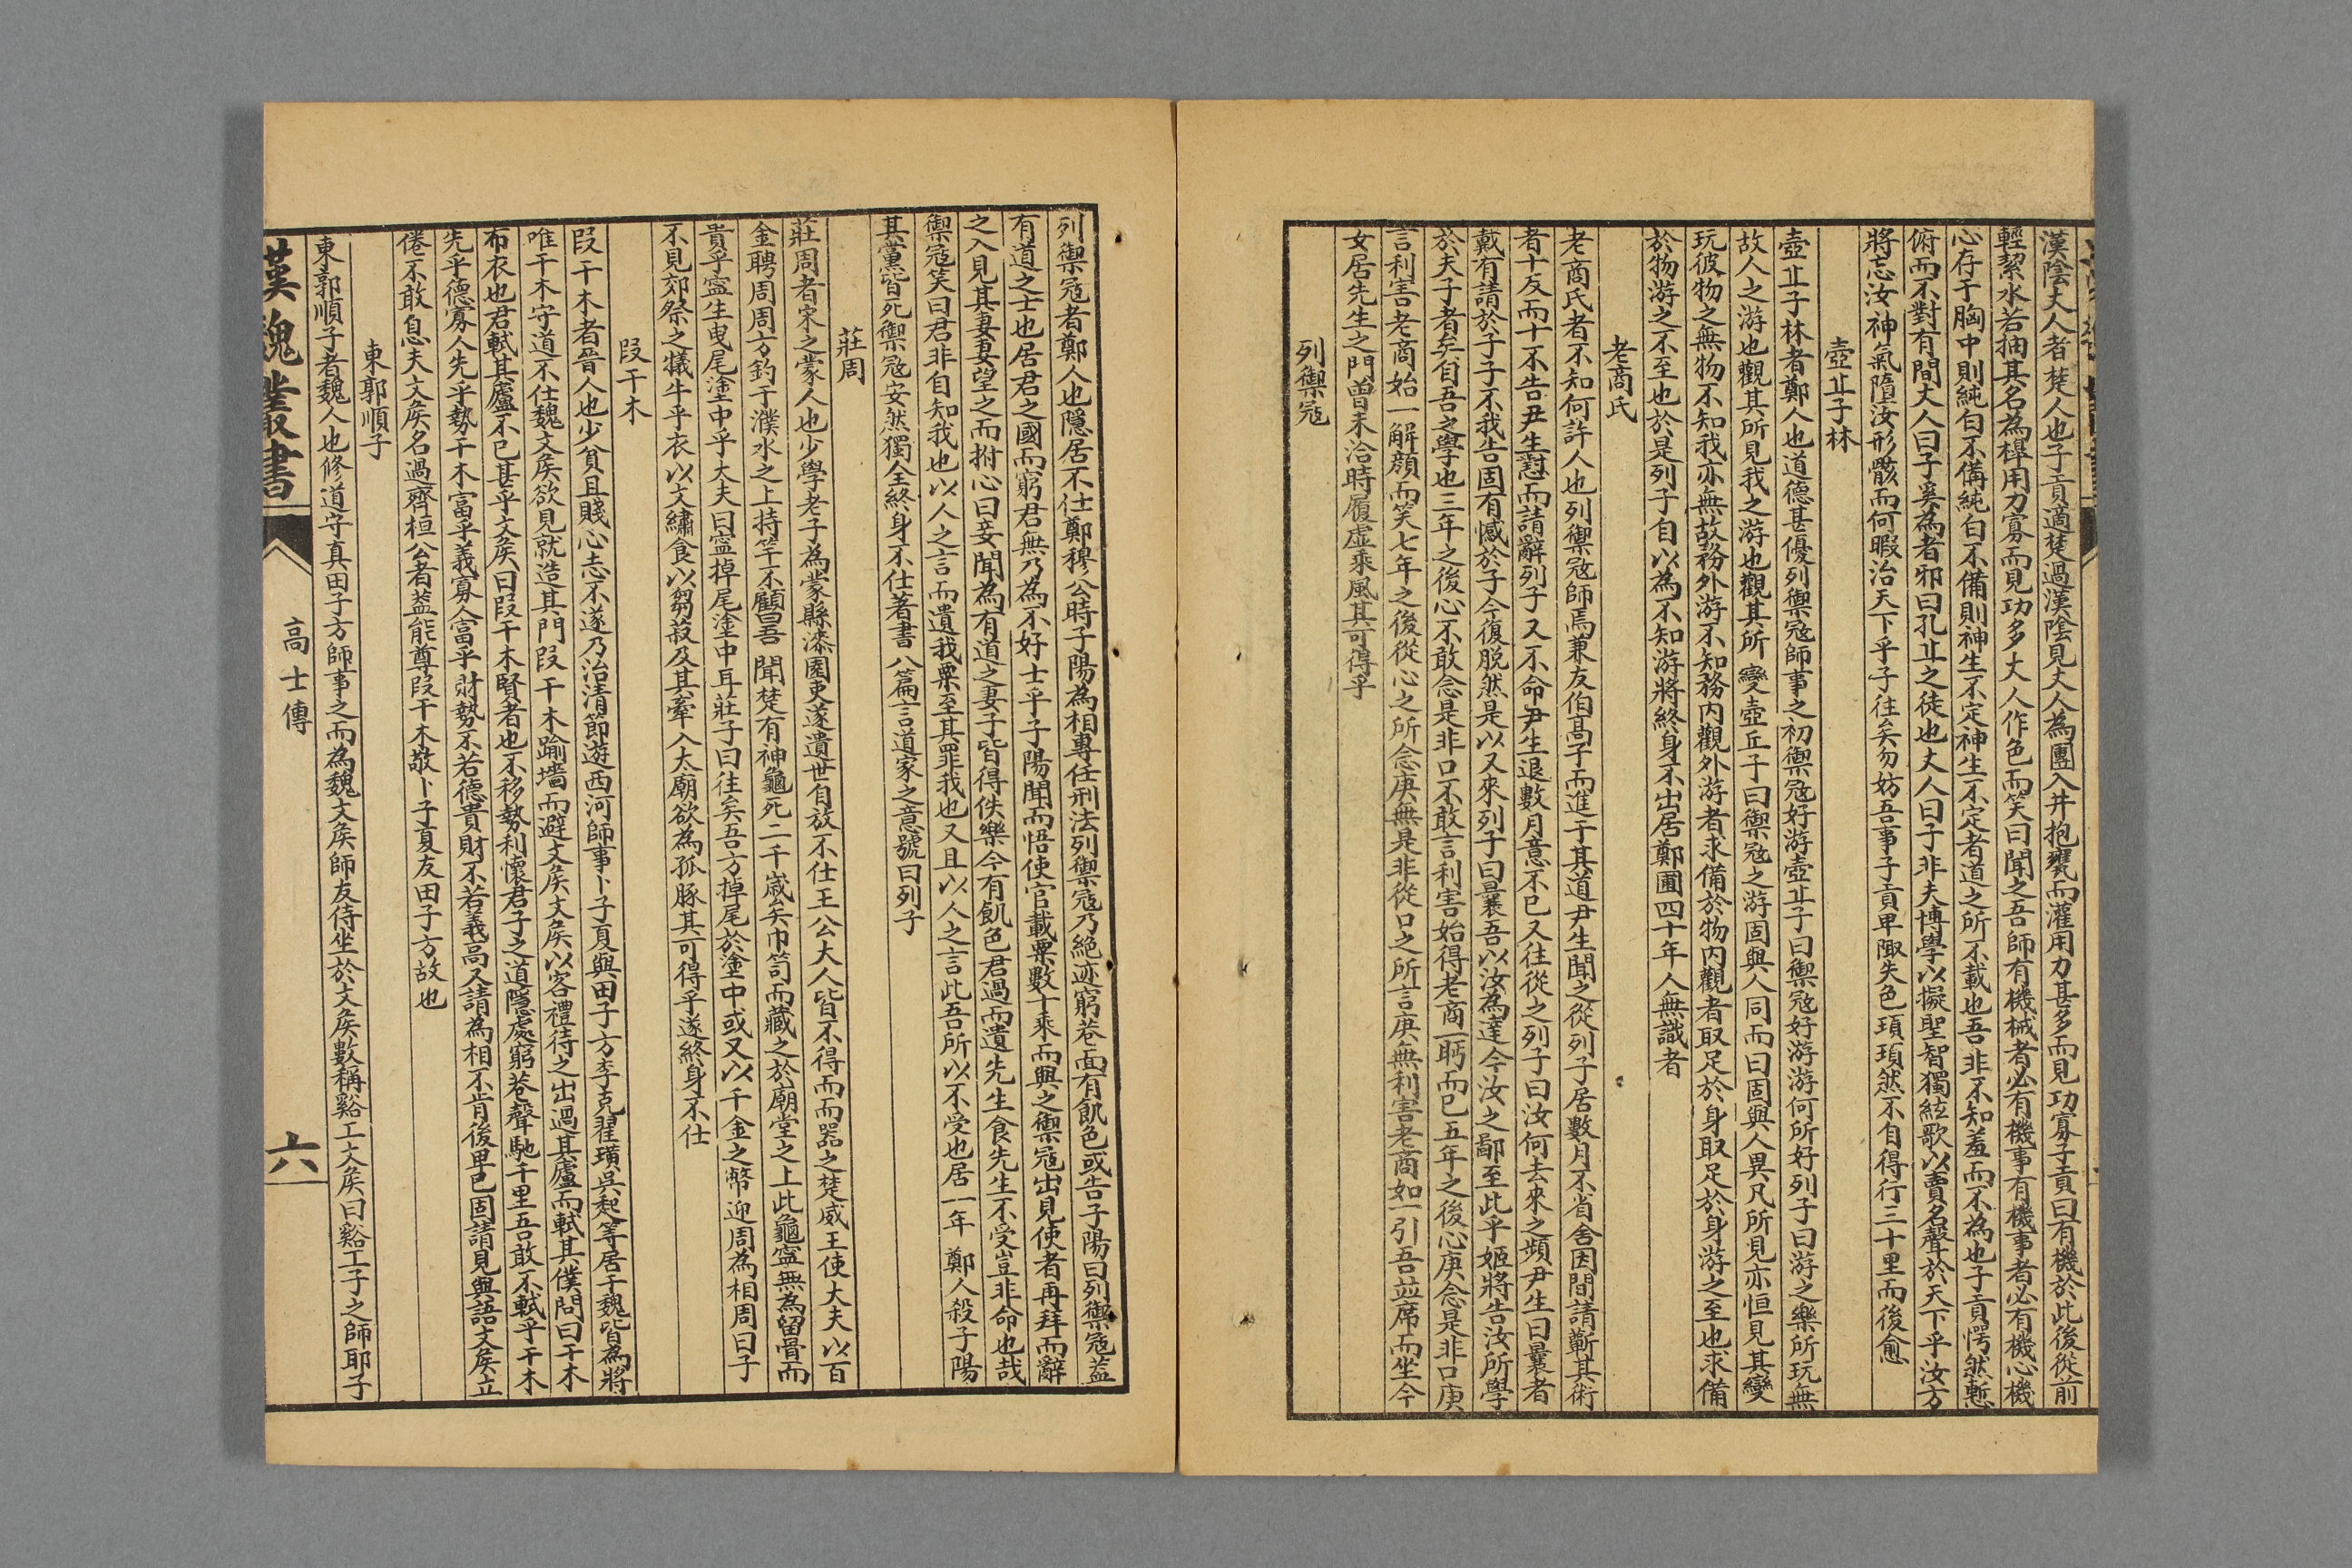 漢陰丈人者楚人也子貢適楚過漢陰見丈人為圃入井抱甕而灌用力甚多而見功寡子貢曰有機於此後從前
輕挈水若抽其名為橰用力寡而見功多丈人作色而笑曰聞之吾師有機械者必有機事有機事者必有機心機
心存于胸中則純白不備純白不備則神生不定神生不定者道之所不載也吾非不知羞而不為也子貢愕然慙
俯而不對有間丈人曰子奚為者邪曰孔丠之徒也丈人曰子非夫博學以擬聖智獨絃歌以賣名聲於天下乎汝方
將忘汝神氣墮汝形骸而何暇治天下乎子往矣勿妨吾事子貢卑陬失色頊頊然不自得行三十里而後愈
壺丠子林
壺丠子林者鄭人也道德甚優列禦寇師事之初禦寇好游壺丠子曰禦寇好游游何所好列子曰游之樂所玩無
故人之游也觀其所見我之游也觀其所變壺丘子曰禦寇之游固與人同而曰固與人異凡所見亦恒見其變
玩彼物之無物不知我亦無故務外游不知務內觀外游者求備於物內觀者取足於身取足於身游之至也求備
於物游之不至也於是列子自以為不知游將終身不出居鄭圃四十年人無識者
老商氏
老商氏者不知何許人也列禦寇師焉兼友伯高子而進于其道尹生聞之從列子居數月不省舍因間請蘄其術
者十反而十不告尹生懟而請辭列子又不命尹生退數月意不已又往從之列子曰汝何去來之頻尹生曰曩者
戴有請於子子不我告固有憾於子今復脫然是以又來列子曰曩吾以汝為達今汝之鄙至此乎姬將告汝所學
於夫子者矣自吾之學也三年之後心不敢念是非口不敢言利害始得老商一眄而已五年之後心庚念是非口庚
言利害老商始一解顏而笑七年之後從心之所念庚無是非從口之所言庚無利害老商如一引吾並席而坐今
女居先生之門曾未洽時履虛乘風其可得乎
列禦寇
列禦寇者鄭人也隱居不仕鄭穆公時子陽為相專任刑法列禦寇乃絕迹窮巷面有飢色或告子陽曰列禦寇葢
有道之士也居君之國而窮君無乃為不好士乎子陽聞而悟使官載粟數十乘而與之禦寇出見使者再拜而辭
之入見其妻妻望之而拊心曰妾聞為有道之妻子皆得佚樂今有飢色君過而遺先生食先生不受豈非命也哉
禦寇笑曰君非自知我也以人之言而遺我粟至其罪我也又且以人之言此吾所以不受也居一年鄭人殺子陽
其黨皆死禦寇安然獨全終身不仕著書八篇言道家之意號曰列子
莊周
莊周者宋之蒙人也少學老子為蒙縣漆園吏遂遺世自放不仕王公大人皆不得而而器之楚威王使大夫以百
金聘周周方釣于濮水之上持竿不顧曰吾聞楚有神龜死二千歲矣巾笥而藏之於廟堂之上此龜寧無為留骨而
貴乎寧生曳尾塗中乎大夫曰寧掉尾塗中耳莊子曰往矣吾方掉尾於塗中或又以千金之幣迎周為相周曰子
不見郊祭之犧牛乎衣以文繡食以芻菽及其牽入太廟欲為孤豚其可得乎遂終身不仕
段干木
段干木者晉人也少貧且賤心志不遂乃治清節遊西河師事卜子夏與田子方李克翟璜吳起等居于魏皆為將
唯干木守道不仕魏文矦欲見就造其門段干木踰墻而避文矦文矦以客禮待之出過其廬而軾其僕問曰干木
布衣也君軾其廬不已甚乎文矦曰段干木賢者也不移勢利懷君子之道隱處窮巷聲馳千里吾敢不軾乎干木
先乎德寡人先乎勢干木富乎義寡人富乎財勢不若德貴財不若義高又請為相不肯後卑已固請見與語文矦立
倦不敢息夫文矦名過齊桓公者葢能尊段干木敬卜子夏友田子方故也
東郭順子
東郭順子者魏人也修道守真田子方師事之而為魏文矦師友侍坐於文矦數稱谿工文矦曰谿工子之師耶子
漢魏叢書
高士傳
六